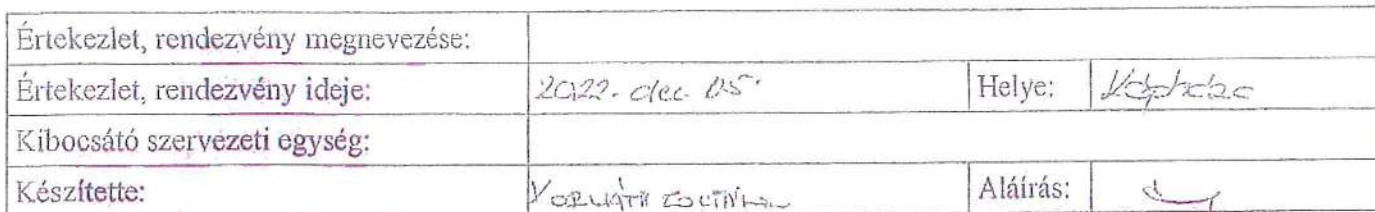 Értekezlet, rendezvény megnevezése:
Értekezlet, rendezvény ideje: 2022. dec. 05. Helye: Kópháza
Kibocsátó szervezeti egység:
Készítette: HORVÁTH ZOLTÁN Aláírás: